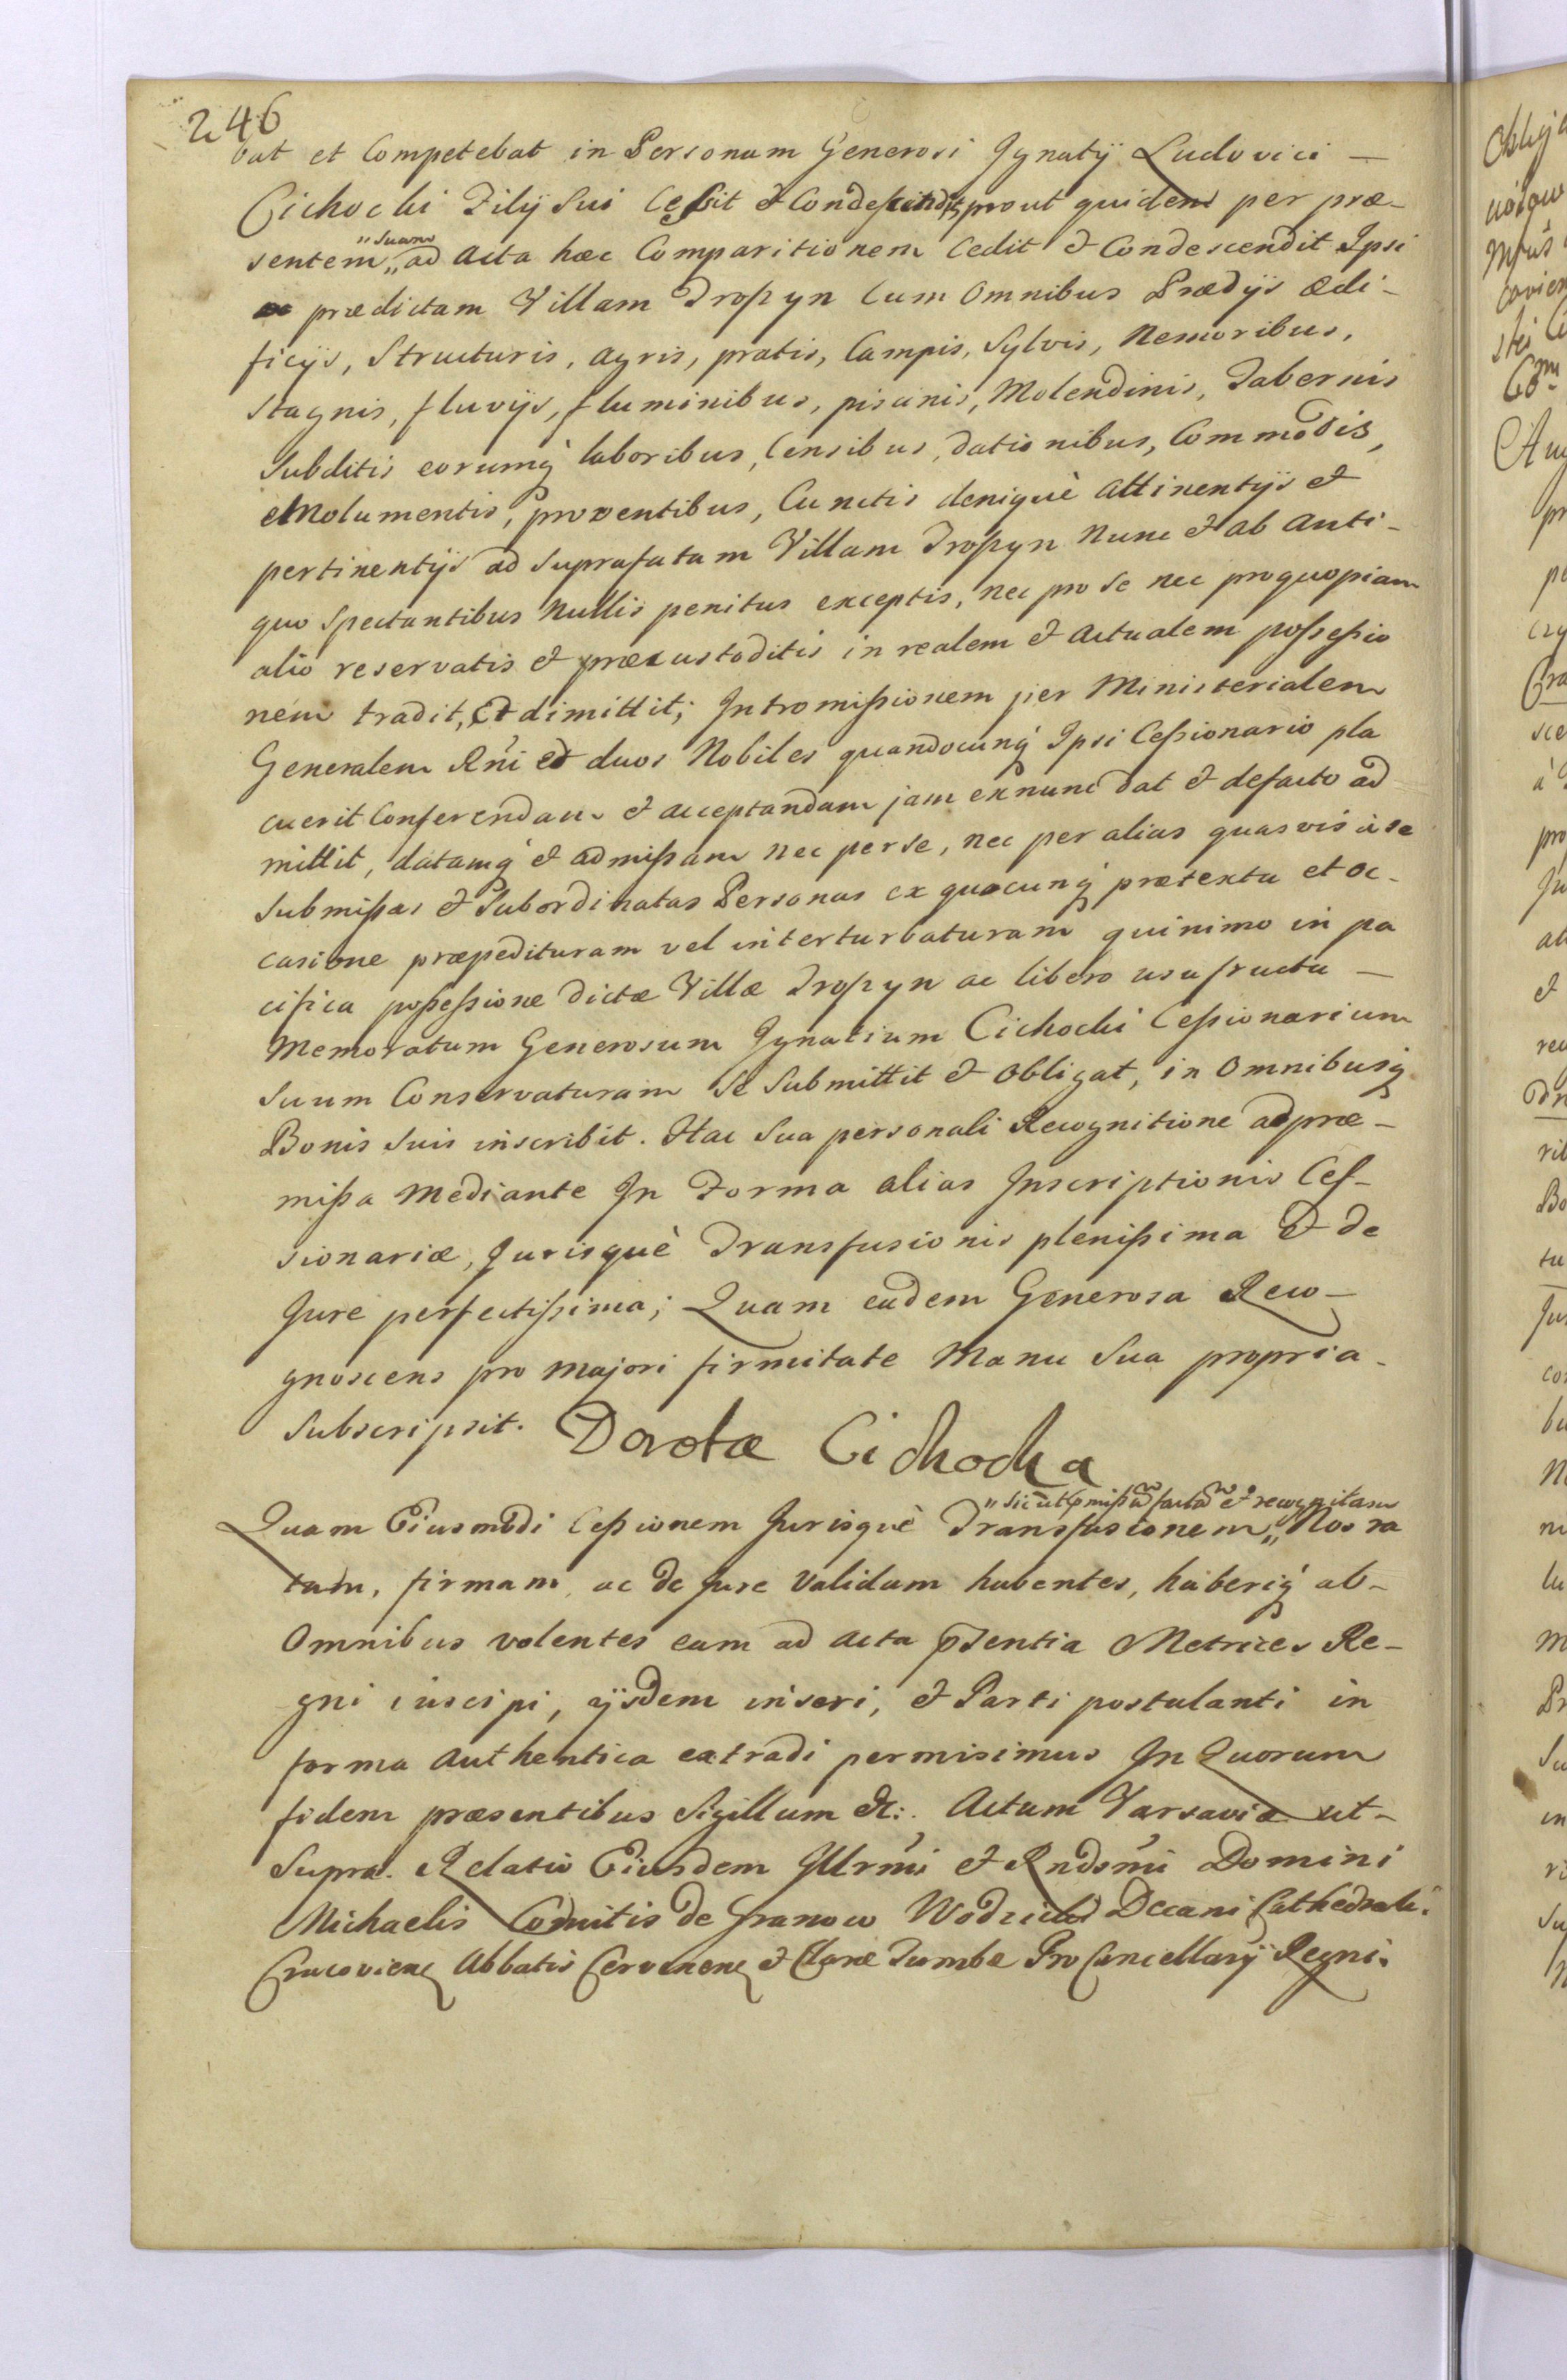 246
bat et Competebat in Personam Generosi Ignatÿ Ludovici —
Cichocki Filÿ Sui Ceßit & Condescendit, prout quidem per præ-
sentem „suam ad Acta hæc Comparitionem Cedit & Condescendit Ipsi
prædictam Villam Tropzyn Cum Omnibus Prædÿs Ædi-
ficÿs, Structuris, Agris, pratis, Campis, Sylvis, Nemoribus,
Stagnis, fluvÿs, fluminibus, piscinis, Molendinis, Tabernis
Subditis eorumq́ laboribus, Censibus, dationibus, Commodis,
emolumentis, proventibus, Cunctis deniquè Attinentÿs &
pertinentÿs ad Suprafatam Villam Tropzyn Nunc & ab Anti-
quo Spectantibus Nullis penitus exceptis, nec pro Se nec pro quopiam
alio reservatis & præcustoditis in realem & Actualem poßeßio
nem tradit, Et dimittit; Intromißionem per Ministerialem
Generalem Rńi et duos Nobiles quandocunq́ Ipsi Ceßionario pla
cuerit Conferendam & acceptandam jam exnunc dat & defacto ad
mittit, datamq́ & admißam nec per se, nec per alias quasvis à se
Submißas & Subordinatas Personas ex quocunq́ prætextu et oc-
casione præpedituram vel interturbaturam quinimo in pa
cifica poßeßione dictæ Villæ Tropzyn ac libero usufructu —
Memoratum Generosum Ignatium Cichocki Ceßionarium
Suum Conservaturam Se Submittit & Obligat, in Omnibusq́
Bonis Suis inscribit. Hac Sua personali Recognitione ad præ-
mißa Mediante In Forma alias Inscriptionis Ces-
sionariæ, Jurisquè Transfusionis plenißima & de
Jure perfectißima; Quam eadem Generosa Reco-
gnoscens pro majori firmitate Manu Sua propria-
Subscripsit. Dorota Cichocka
„Sicut pmißũ factã & recognitam
Quam Eiusmodi Ceßionem Jurisquè Transfusionem „ Nos ra
tam, firmam, ac de Jure Validam habentes, haberiq́ ab-
Omnibus volentes eam ad Acta pñsentia Metrices Re-
gni suscipi, ÿsdem inseri, & Parti postulanti in
forma Authentica extradi permisimus In Quorum
fidem præsentibus Sigillum &c:. Actum Varsaviæ ut-
Supra. Relatio Eiusdem Illrm̃i & Rndom̃i Domini
Michaelis Comitis de Granow Wodzicki Decani Cathedrali.
Cracovien Abbatis Cervenen & Claræ Tumbæ Pro Cancellarÿ Regni.